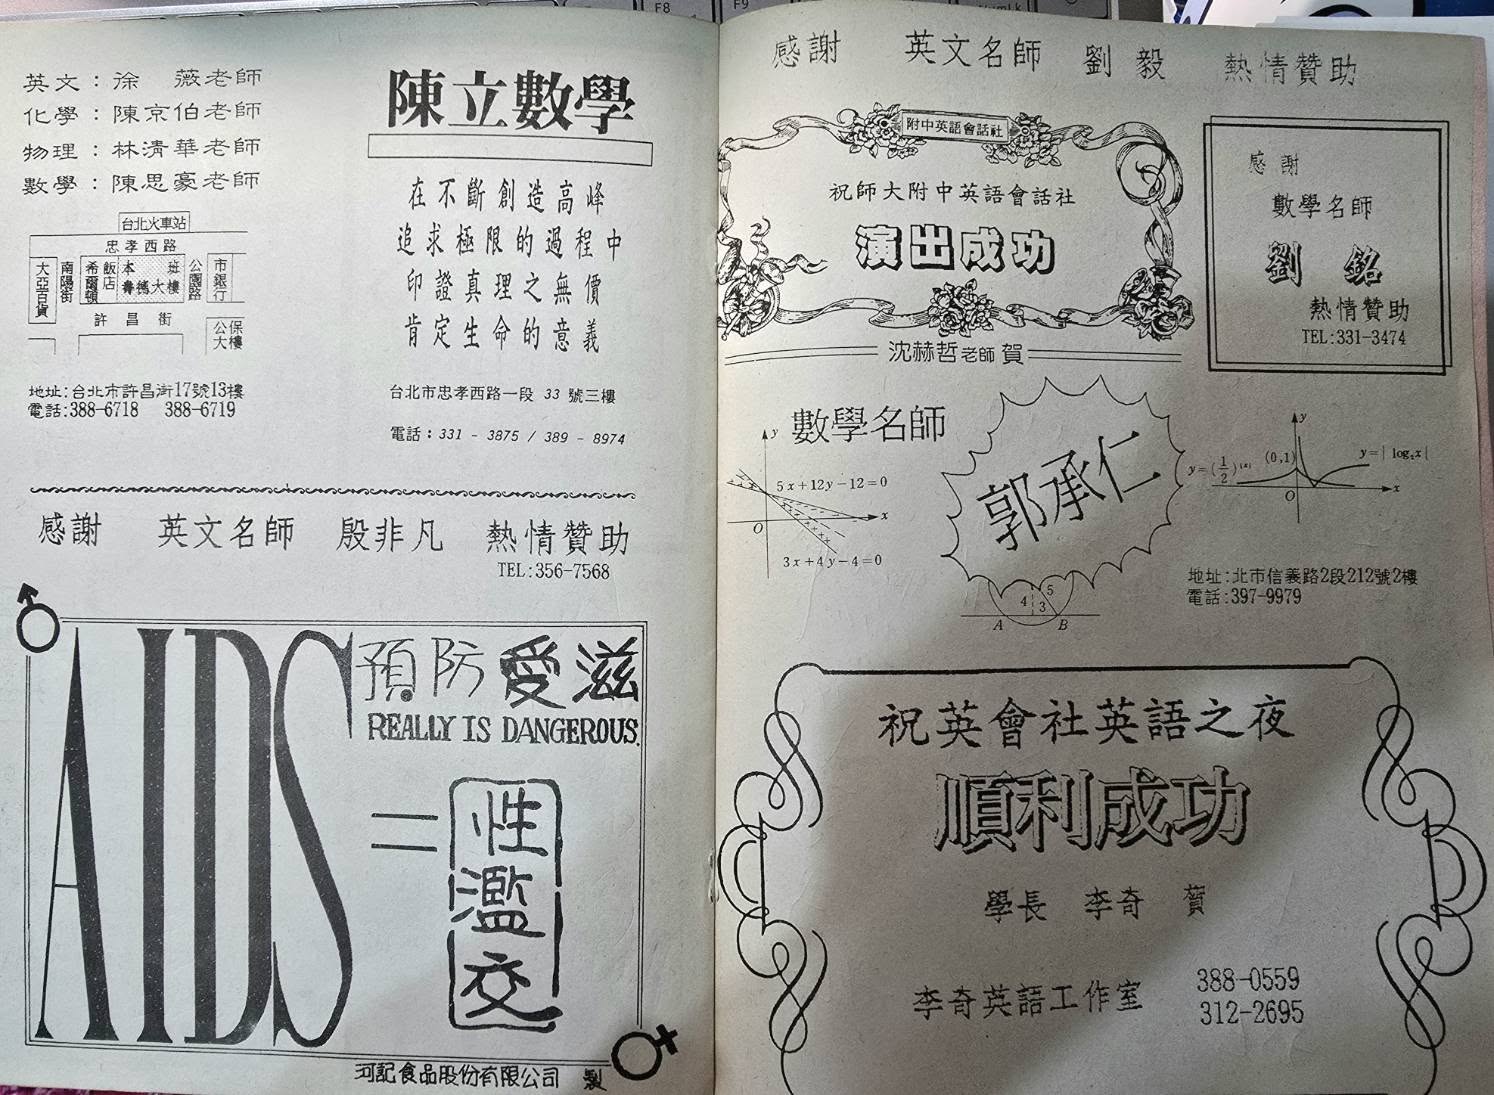 英文：徐　薇老師
化學：陳京伯老師
物理：林清華老師
數學：陳思豪老師
台北火車站
忠孝西路
大亞百貨
南陽街
希爾頓飯店
本班
壽德大樓
公園路
市銀行
許昌街
公保大樓
地址:台北市許昌街17號13樓
電話:388-6718　388-6719
陳立數學
在不斷創造高峰
追求極限的過程中
印證真理之無價
肯定生命的意義
台北市忠孝西路一段 33 號三樓
電話：331 - 3875 / 389 - 8974
感謝　英文名師　殷非凡　熱情贊助
TEL:356-7568
AIDS
預防愛滋
REALLY IS DANGEROUS.
=
性濫交
河記食品股份有限公司　製
感謝　英文名師　劉　毅　熱情贊助
附中英語會話社
祝師大附中英語會話社
演出成功
沈赫哲老師 賀
感謝
數學名師
劉　銘
熱情贊助
TEL:331-3474
數學名師
郭承仁
y
5x+12y-12=0
x
O
3x+4y-4=0
4
5
3
A
B
y
y=(1/2)^|x|
(0,1)
y=|log₂x|
O
x
地址:北市信義路2段212號2樓
電話:397-9979
祝英會社英語之夜
順利成功
學長　李奇　賀
李奇英語工作室
388-0559
312-2695